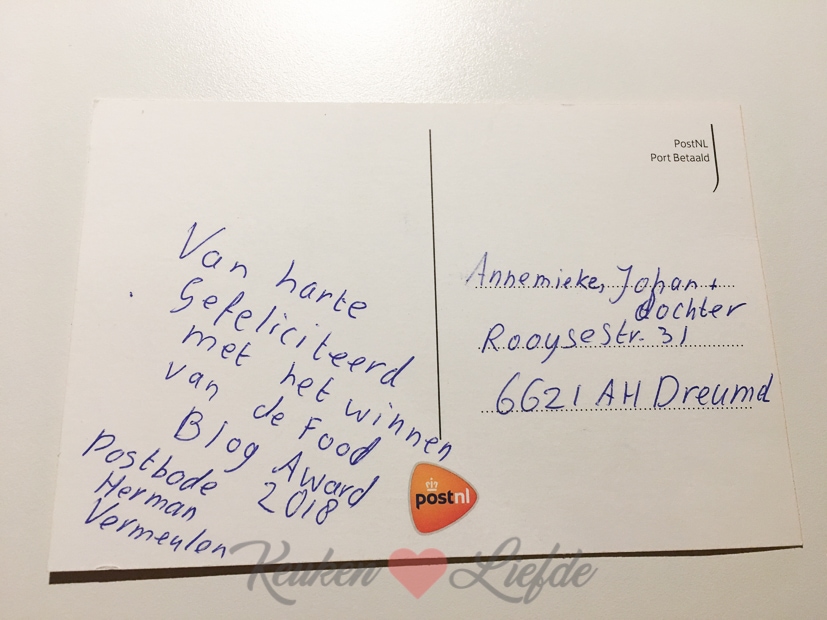 Van harte
Gefeliciteerd
met het winnen
van de Food
Blog Award
2018
Postbode
Herman
Vermeulen
PostNL
Port Betaald
Annemieke, Johan +
dochter
Rooysestr. 31
6621 AH Dreumel
postnl
Keuken Liefde